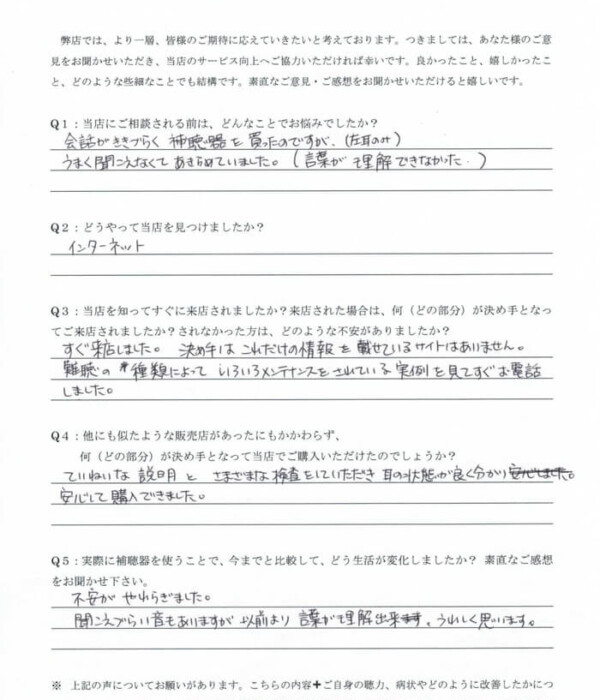 弊店では、より一層、皆様のご期待に応えていきたいと考えております。つきましては、あなた様のご意
見をお聞かせいただき、当店のサービス向上へご協力いただければ幸いです。良かったこと、嬉しかったこ
と、どのような些細なことでも結構です。素直なご意見・ご感想をお聞かせいただけると嬉しいです。
Q1：当店にご相談される前は、どんなことでお悩みでしたか？
会話がききづらく 補聴器を買ったのですが、(左耳のみ)
うまく聞こえなくて あきらめていました。(言葉が理解できなかった．)
Q2：どうやって当店を見つけましたか？
インターネット
Q3：当店を知ってすぐに来店されましたか？来店された場合は、何（どの部分）が決め手となっ
てご来店されましたか？されなかった方は、どのような不安がありましたか？
すぐ来店しました。 決め手は これだけの情報を載せているサイトはありません。
難聴の 種類によって いろいろメンテナンスをされている 実例を見てすぐお電話
しました。
Q4：他にも似たような販売店があったにもかかわらず、
何（どの部分）が決め手となって当店でご購入いただけたのでしょうか？
ていねいな 説明と さまざまな検査をしていただき 耳の状態が良く分かり 安心しました。
安心して購入できました。
Q5：実際に補聴器を使うことで、今までと比較して、どう生活が変化しましたか？ 素直なご感想
をお聞かせ下さい。
不安が やわらぎました。
聞こえづらい音もありますが 以前より 言葉が理解出来ます。うれしく思います。
※ 上記の声についてお願いがあります。こちらの内容＋ご自身の聴力、病状やどのように改善したかにつ